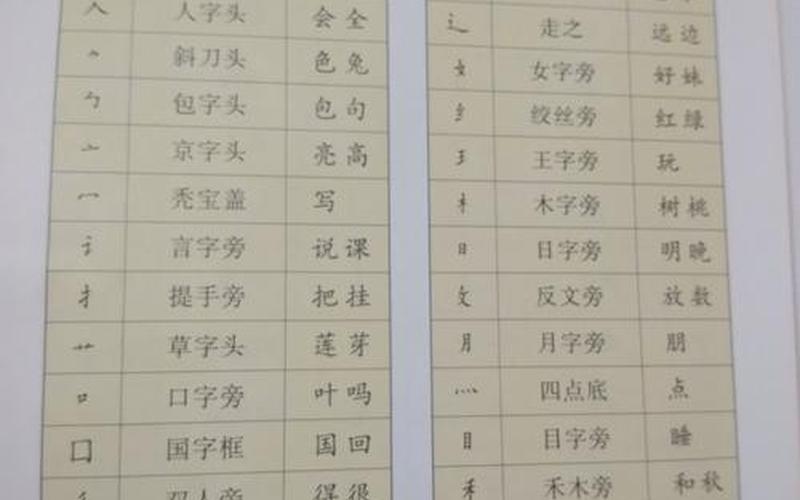 人 人字头 会 全
⺈ 斜刀头 色 兔
勹 包字头 包 句
亠 京字头 亮 高
冖 秃宝盖 写
讠 言字旁 说 课
扌 提手旁 把 挂
艹 草字头 莲 芽
口 口字旁 叶 吗
囗 国字框 国 回
彳 双人旁 得 很
辶 走之 远 边
女 女字旁 好 妹
纟 绞丝旁 红 绿
王 王字旁 玩
木 木字旁 树 桃
日 日字旁 明 晚
攵 反文旁 放 数
月 月字旁 朋
灬 四点底 点
目 目字旁 睡
禾 禾木旁 和 秋